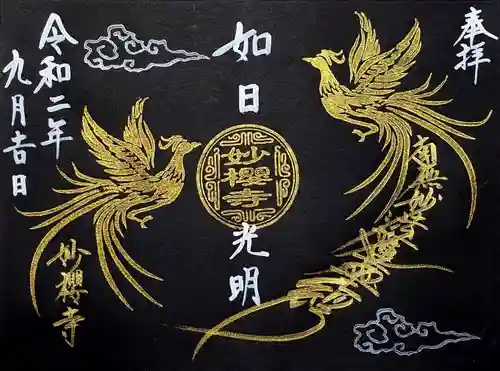 奉拝
南無妙法蓮華経
如日光明
妙櫻寺
令和二年
九月吉日
妙櫻寺